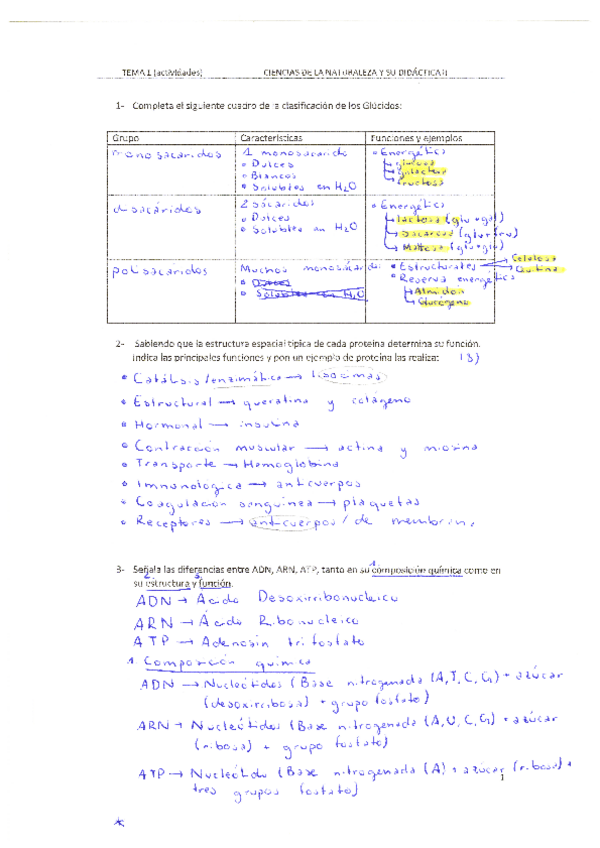 TEMA 1 (actividades) CIENCIAS DE LA NATURALEZA Y SU DIDÁCTICA I
1- Completa el siguiente cuadro de la clasificación de los Glúcidos:
Grupo Características Funciones y ejemplos
monosacáridos 1 monosacárido • Energética
• Dulces glucosa
• Blancos galactosa
• Solubles en H2O fructosa
disacáridos 2 sacáridos • Energética
• Dulces lactosa (glu+gal)
• Solubles en H2O sacarosa (glu+fru)
Maltosa (glu+glu)
polisacáridos Muchos monosácarido • Estructurales Celulosa
• Dulces • Reserva energética Quitina
• Solubles en H2O Almidón
Glucógeno
2- Sabiendo que la estructura espacial típica de cada proteína determina su función.
Indica las principales funciones y pon un ejemplo de proteína las realiza: (8)
• Catálisis/enzimática → Lisocimas
• Estructural → queratina y colágeno
• Hormonal → insulina
• Contracción muscular → actina y miosina
• Transporte → Hemoglobina
• Inmunologica → anticuerpos
• Coagulación sanguínea → plaquetas
• Receptores → anticuerpos/de membrana
3- Señala las diferencias entre ADN, ARN, ATP, tanto en su composición química como en
su estructura y función.
ADN → Ácido Desoxirribonucleico
ARN → Ácido Ribonucleico
ATP → Adenosín trifosfato
1. Composición química
ADN → Nucleótidos (Base nitrogenada (A,T,C,G) + azúcar
(desoxirribosa) + grupo fosfato)
ARN → Nucleótidos (Base nitrogenada (A,U,C,G) + azúcar
(ribosa) + grupo fosfato)
ATP → Nucleótido (Base nitrogenada (A) + azúcar (ribosa) +
tres grupos fosfato)
1
*